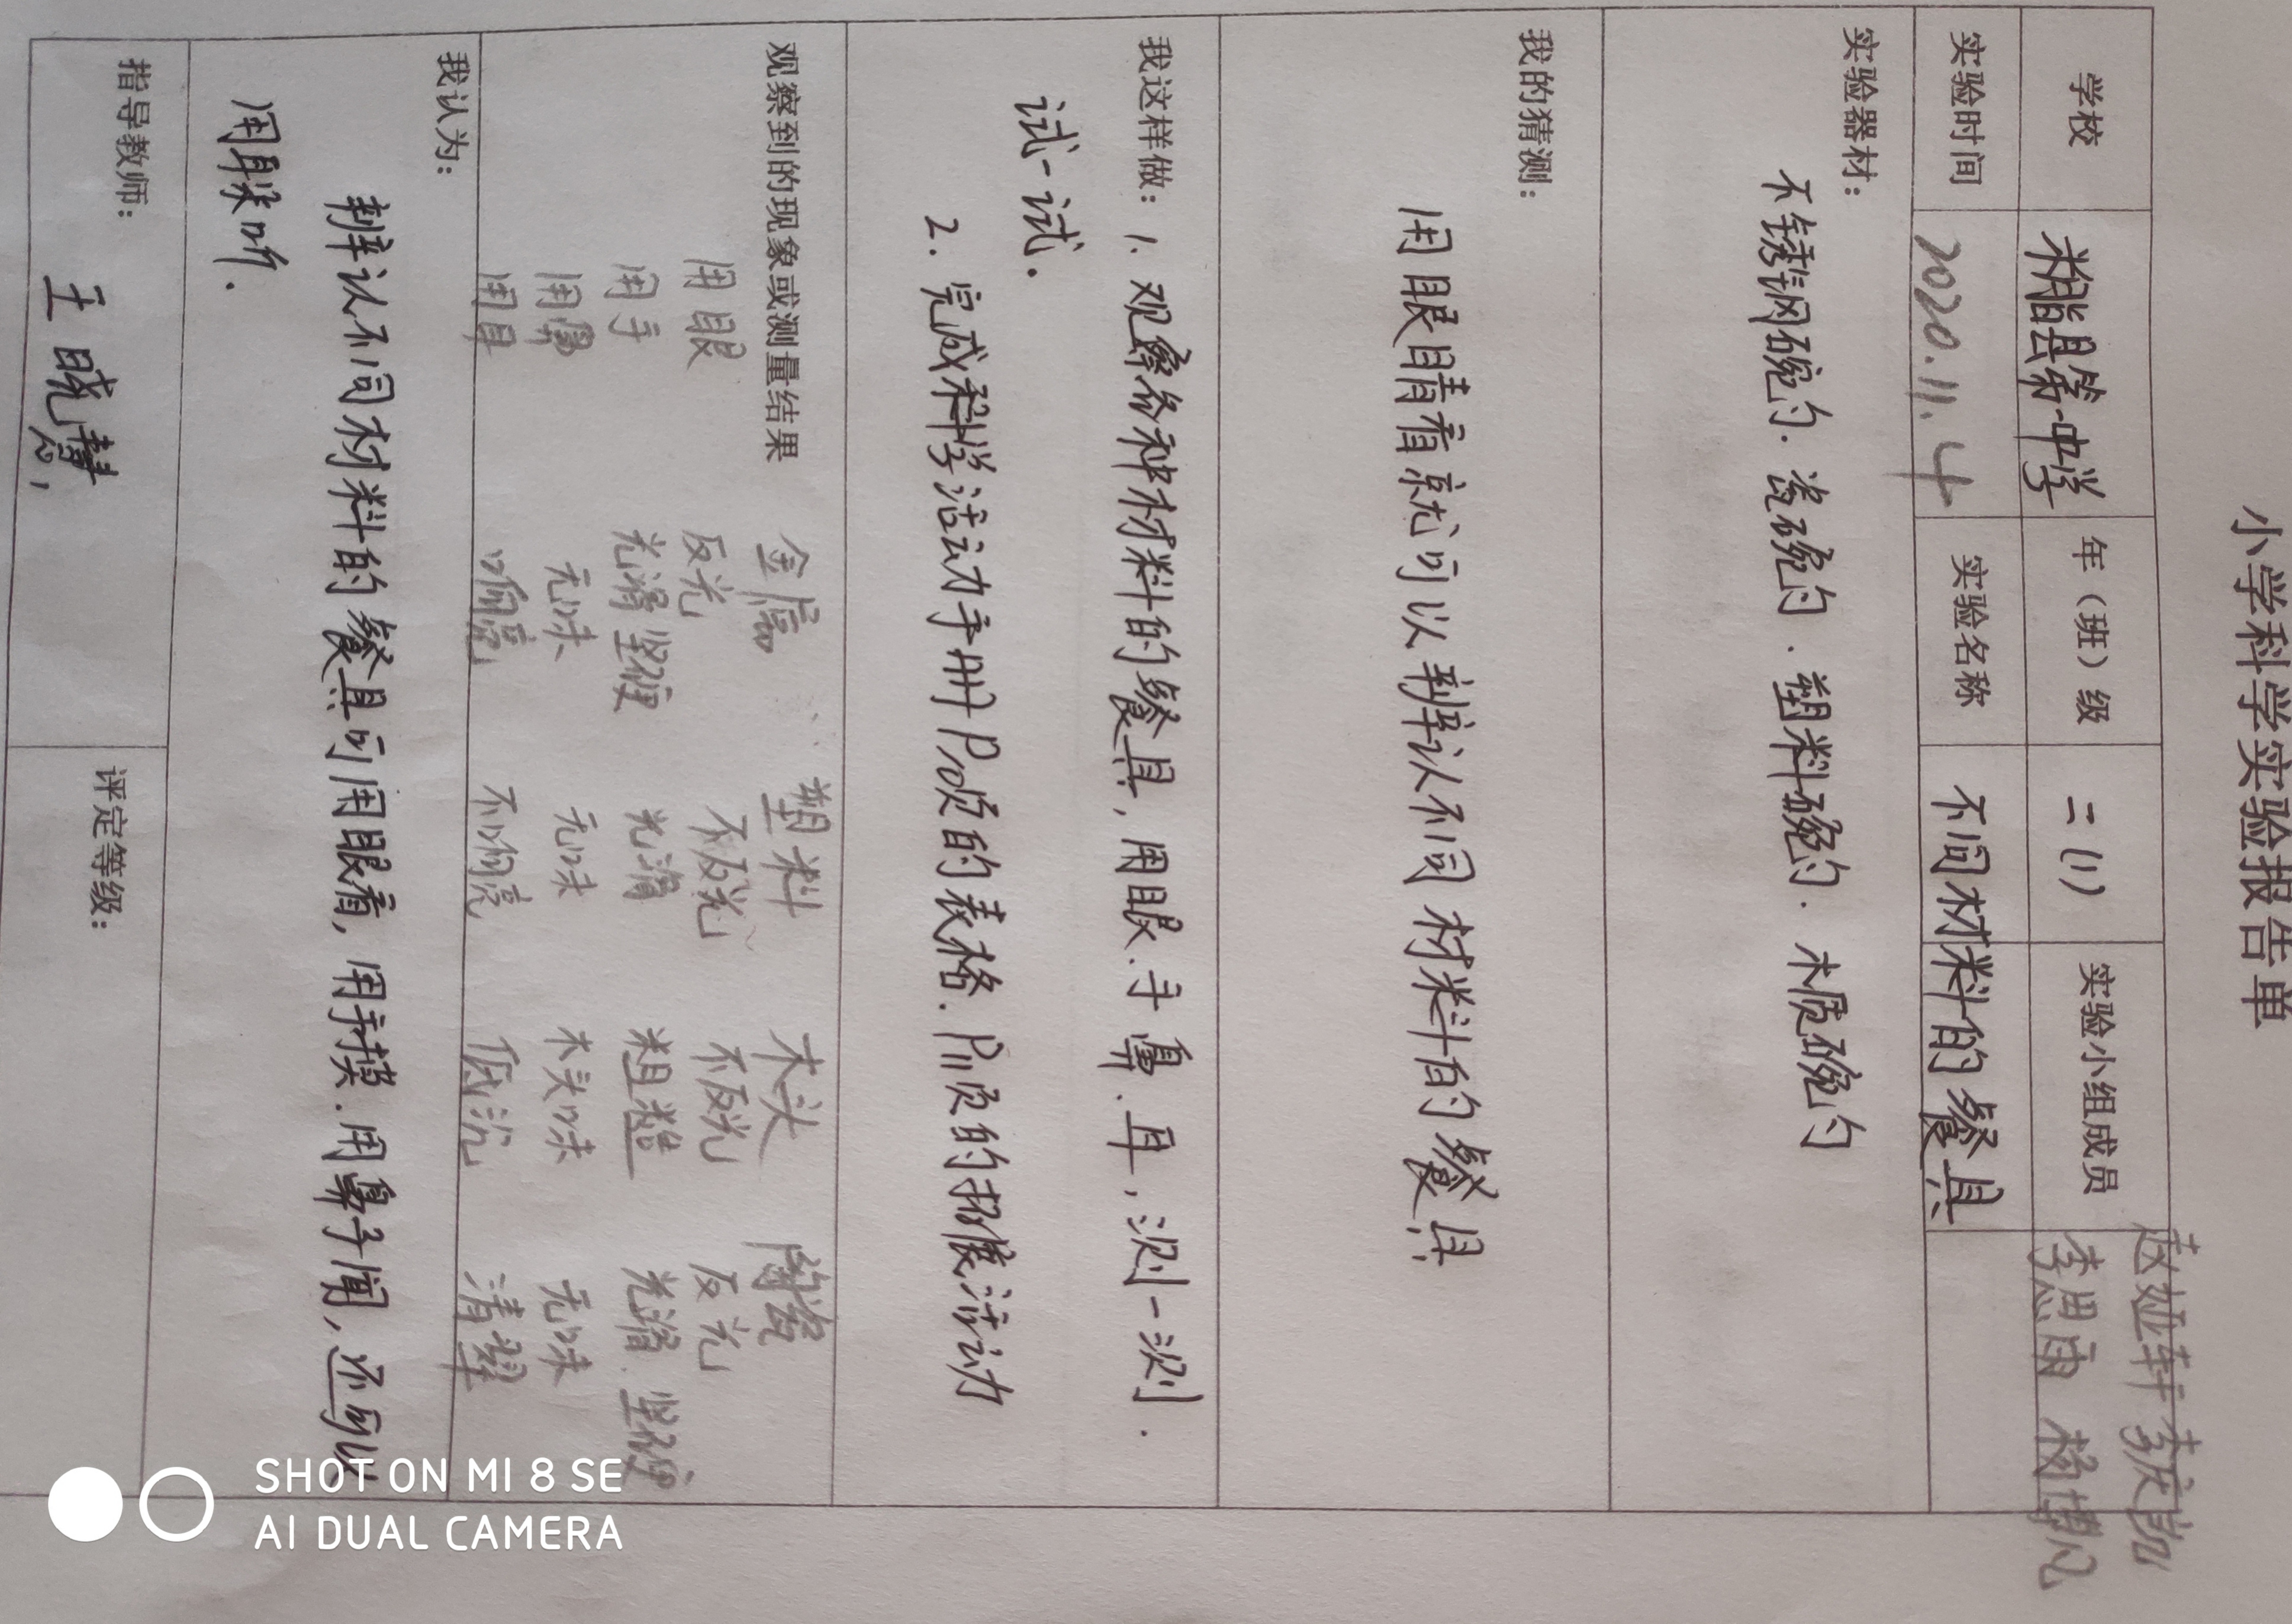 小学科学实验报告单
学校 米脂县第一中学 年（班）级 二（1） 实验小组成员 李思雨 杨博凡
实验时间 2020.11.4 实验名称 不同材料的餐具
实验器材：
不锈钢碗勺．瓷碗勺．塑料碗勺．木质碗勺
我的猜测：
用眼睛看就可以辨认不同材料的餐具
我这样做：1. 观察各种材料的餐具，用眼、手、鼻、耳，测一测．
试一试．
2. 完成科学活动手册P10页的表格．P11页的拓展活动
观察到的现象或测量结果 金属 塑料 木头 陶瓷
用眼 反光 不反光 不反光 反光
用手 光滑 坚硬 光滑 粗糙 光滑．坚硬
用鼻 无味 无味 木头味 无味
用耳 响亮 不响亮 低沉 清翠
我认为：
辨认不同材料的餐具可用眼看，用手摸．用鼻子闻，还可以
用耳朵听．
指导教师： 王晓慧 评定等级：
SHOT ON MI 8 SE
AI DUAL CAMERA